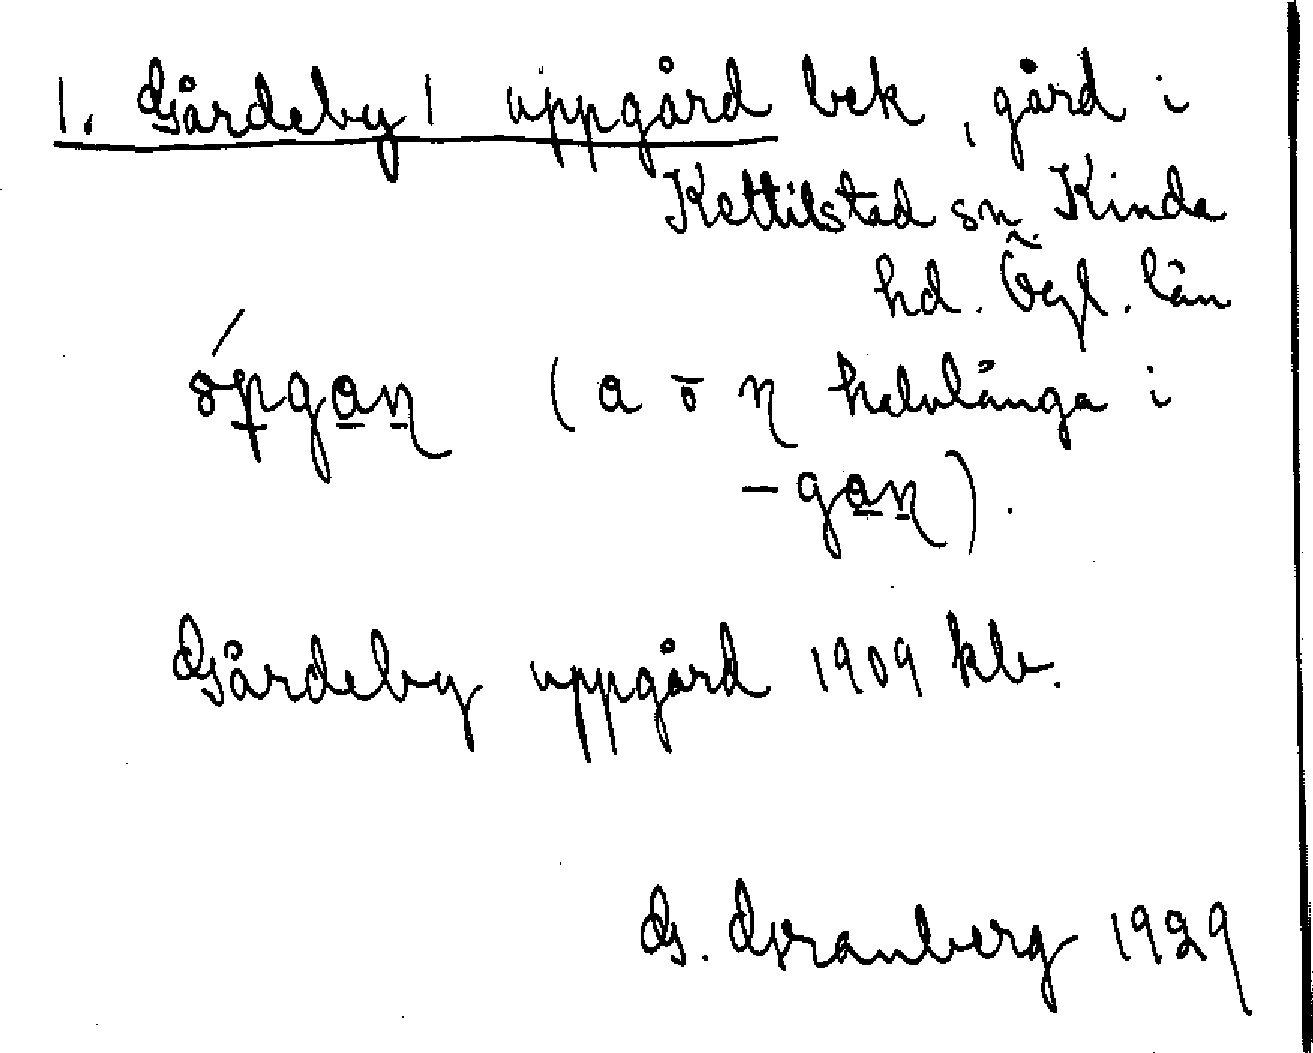 1. Gårdeby | uppgård bek, gård i
Kettilstad sn. Kinda
hd. Ögl. län
ópgan̥ (a o n̥ halvlånga i
- gan̥).
Gårdeby uppgård 1909 kb.
G. Granberg 1929